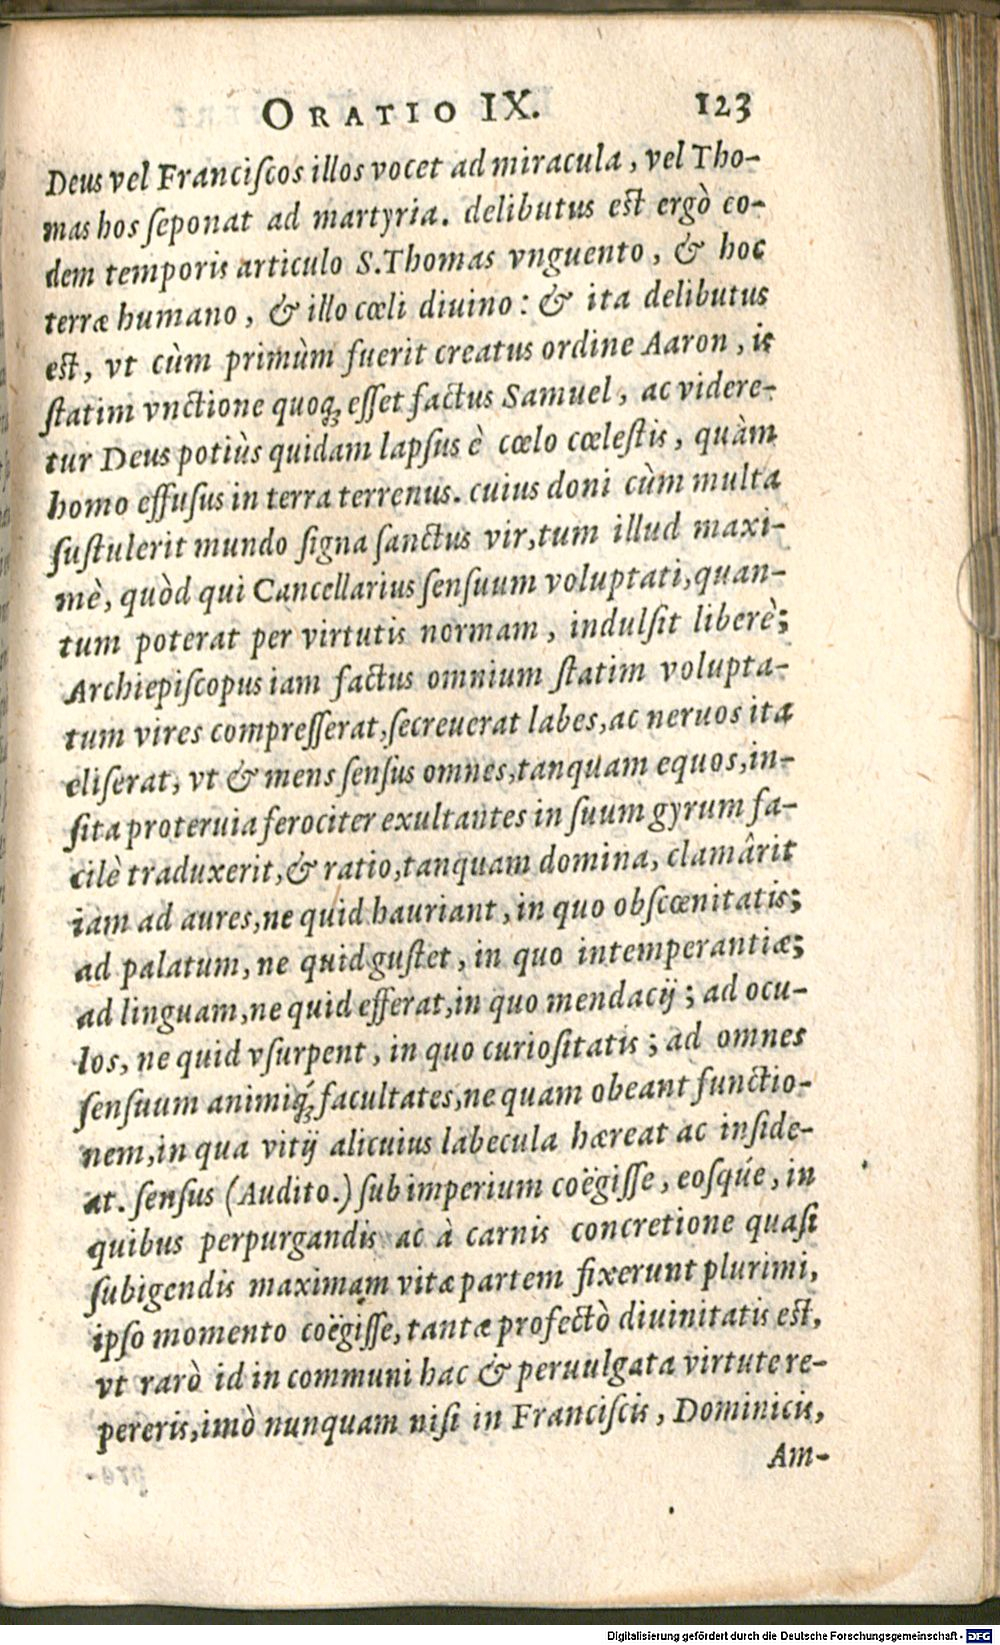 ORATIO IX. 123
Deus vel Franciſcos illos vocet ad miracula, vel Tho-
mas hos ſeponat ad martyria. delibutus est ergò eo-
dem temporis articulo S. Thomas vnguento, & hoc
terræ humano, & illo cœli diuino: & ita delibutus
est, vt cùm primùm fuerit creatus ordine Aaron, is
ſtatim vnctione quoq; eſſet factus Samuel, ac videre-
tur Deus potiùs quidam lapſus è cœlo cœleſtis, quàm
homo effuſus in terra terrenus. cuius doni cùm multa
ſuſtulerit mundo ſigna ſanctus vir, tum illud maxi-
mè, quòd qui Cancellarius ſenſuum voluptati, quan-
tum poterat per virtutis normam, indulſit liberè;
Archiepiſcopus iam factus omnium ſtatim volupta-
tum vires compreſſerat, ſecreuerat labes, ac neruos ita
eliſerat, vt & mens ſenſus omnes, tanquam equos, in-
ſita proteruia ferociter exultantes in ſuum gyrum fa-
cilè traduxerit, & ratio, tanquam domina, clamârit
iam ad aures, ne quid hauriant, in quo obſcœnitatis;
ad palatum, ne quid guſtet, in quo intemperantiæ;
ad linguam, ne quid efferat, in quo mendacij; ad ocu-
los, ne quid vſurpent, in quo curioſitatis; ad omnes
ſenſuum animiq́; facultates, ne quam obeant functio-
nem, in qua vitij alicuius labecula hæreat ac inſide-
at. ſenſus (Audito.) ſub imperium coëgiſſe, eoſqúe, in
quibus perpurgandis ac à carnis concretione quaſi
ſubigendis maximam vitæ partem fixerunt plurimi,
ipſo momento coëgiſſe, tantæ profectò diuinitatis est,
vt rarò id in communi hac & peruulgata virtute re-
pereris, imò nunquam niſi in Franciſcis, Dominicis,
Am-
Digitalisierung gefördert durch die Deutsche Forschungsgemeinschaft - DFG